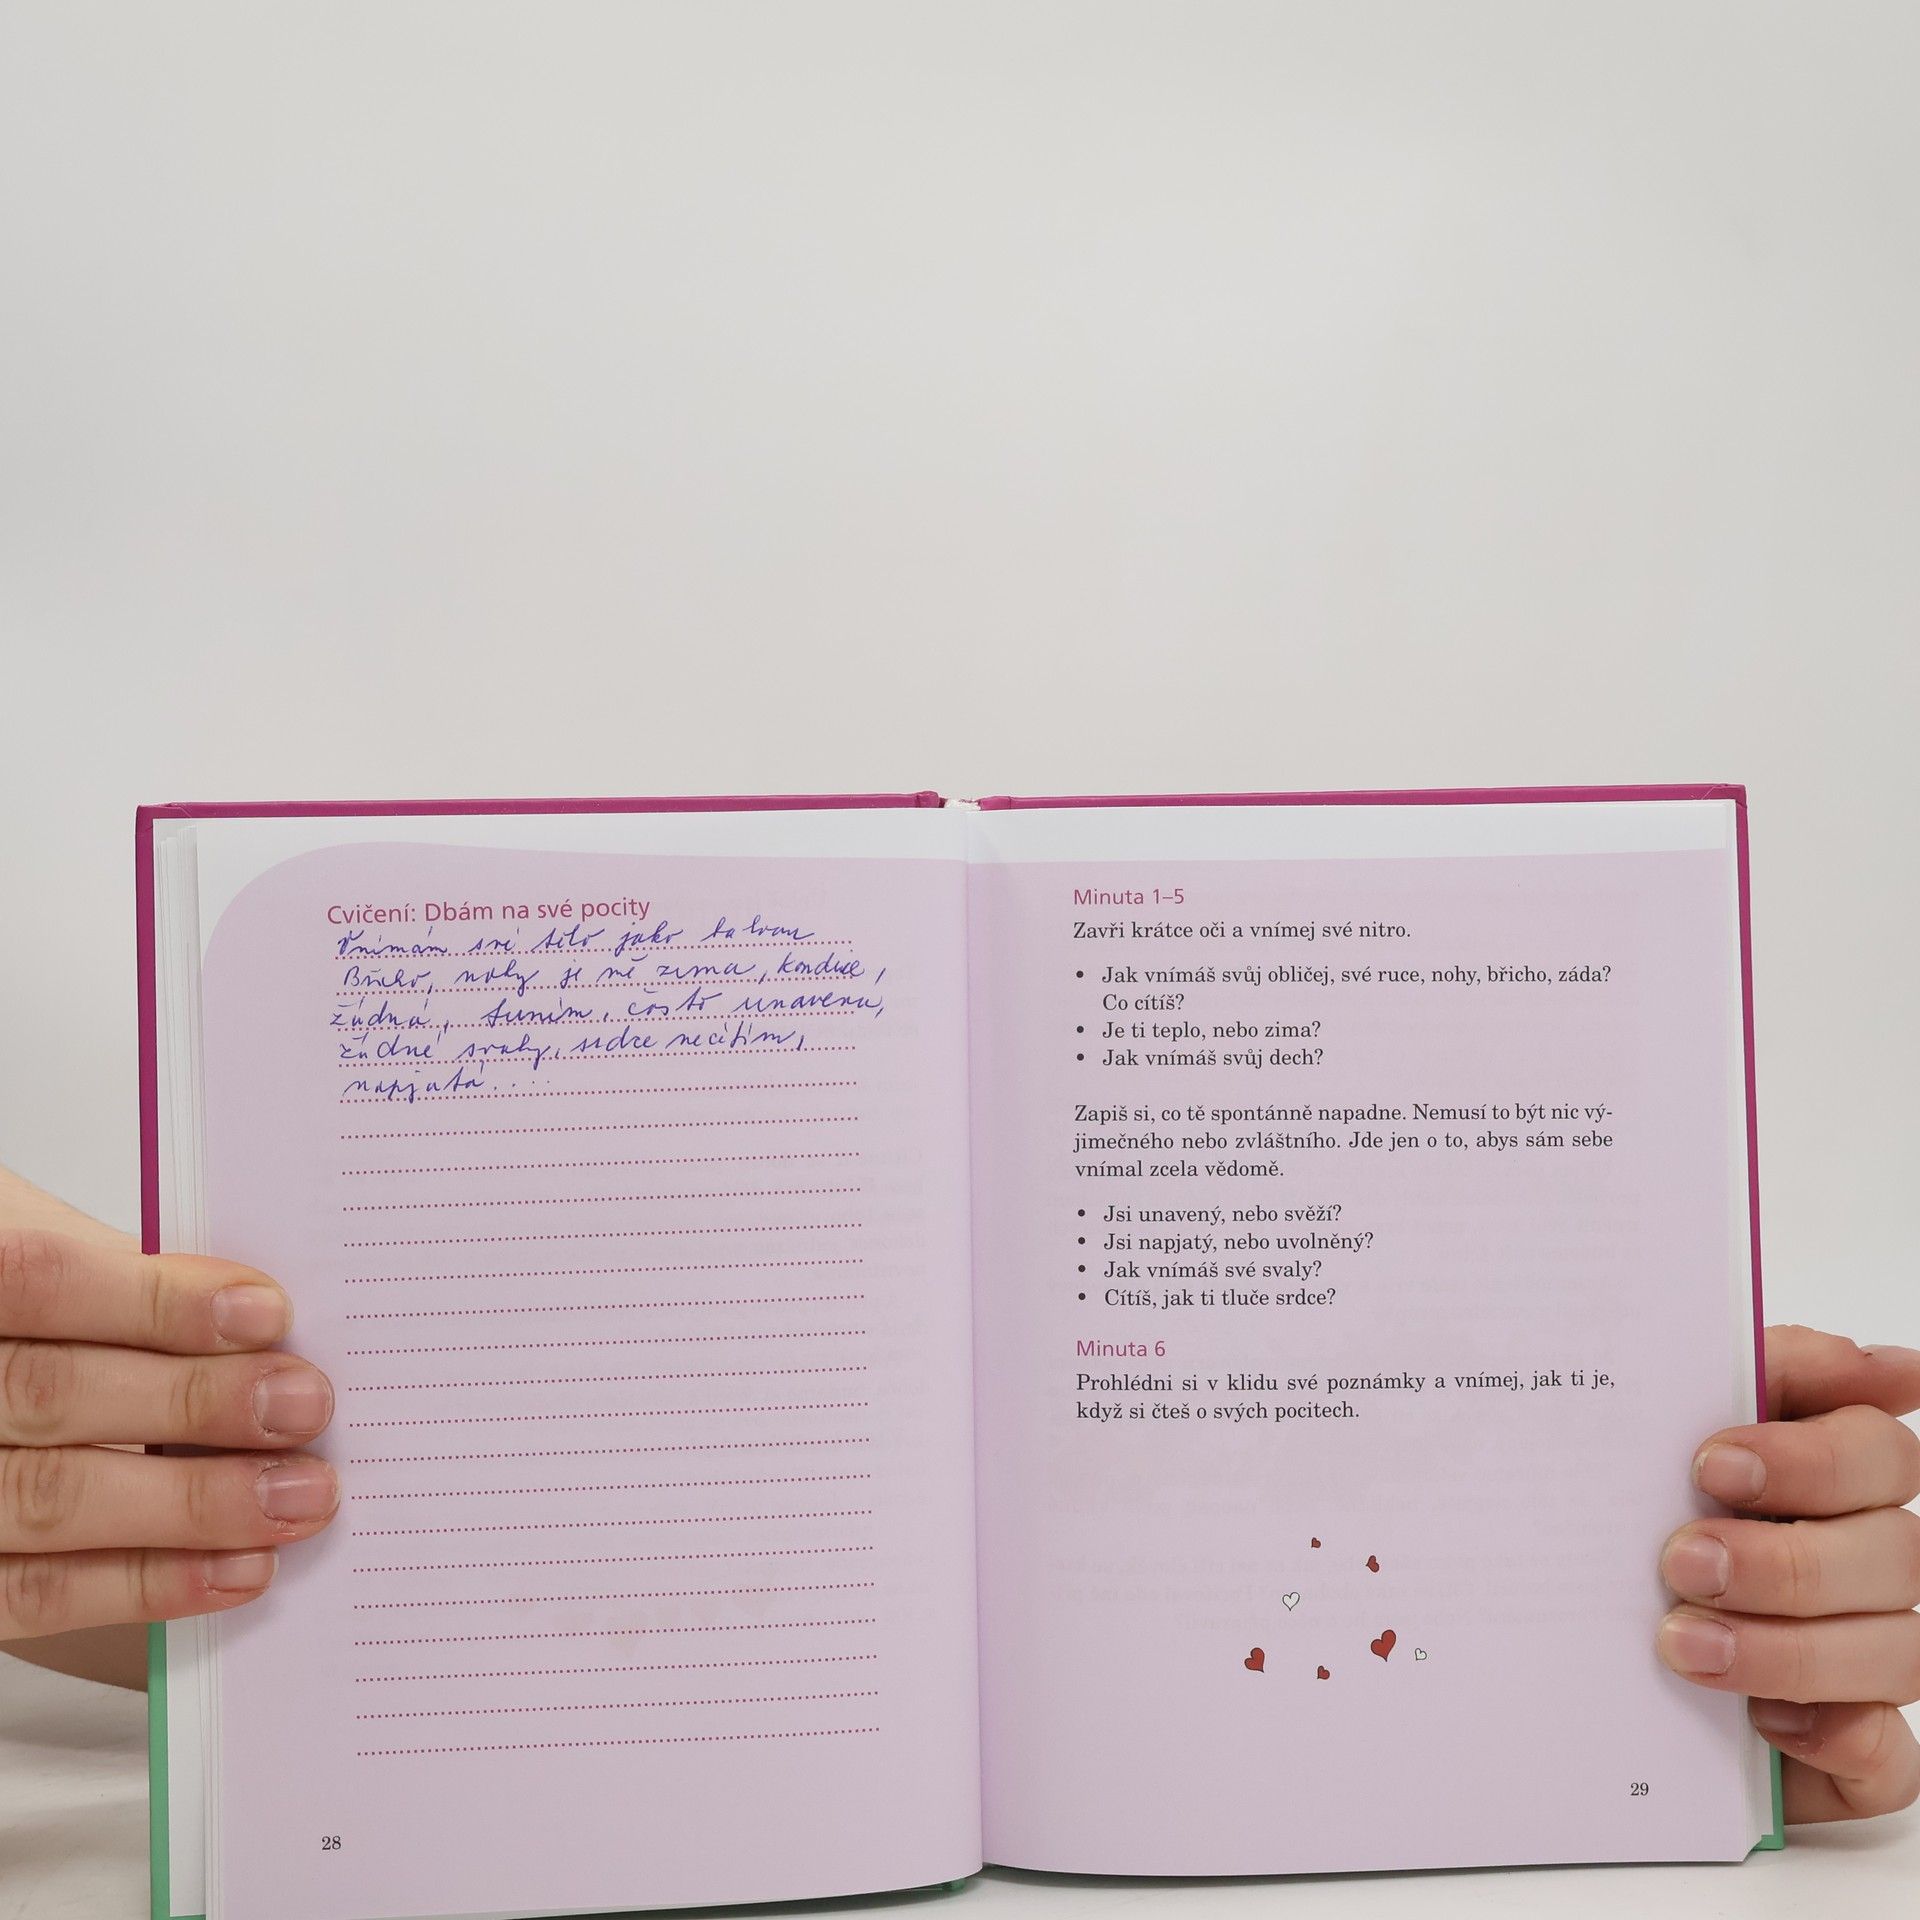 Cvičení: Dbám na své pocity
Vnímám své tělo jako balvan
Břicho, nohy je mě zima, kondice,
žádná, funím, často unavena,
žádné svaly, srdce necítím,
napjatá.....
28
Minuta 1–5
Zavři krátce oči a vnímej své nitro.
• Jak vnímáš svůj obličej, své ruce, nohy, břicho, záda?
Co cítíš?
• Je ti teplo, nebo zima?
• Jak vnímáš svůj dech?
Zapiš si, co tě spontánně napadne. Nemusí to být nic vý-
jimečného nebo zvláštního. Jde jen o to, abys sám sebe
vnímal zcela vědomě.
• Jsi unavený, nebo svěží?
• Jsi napjatý, nebo uvolněný?
• Jak vnímáš své svaly?
• Cítíš, jak ti tluče srdce?
Minuta 6
Prohlédni si v klidu své poznámky a vnímej, jak ti je,
když si čteš o svých pocitech.
29